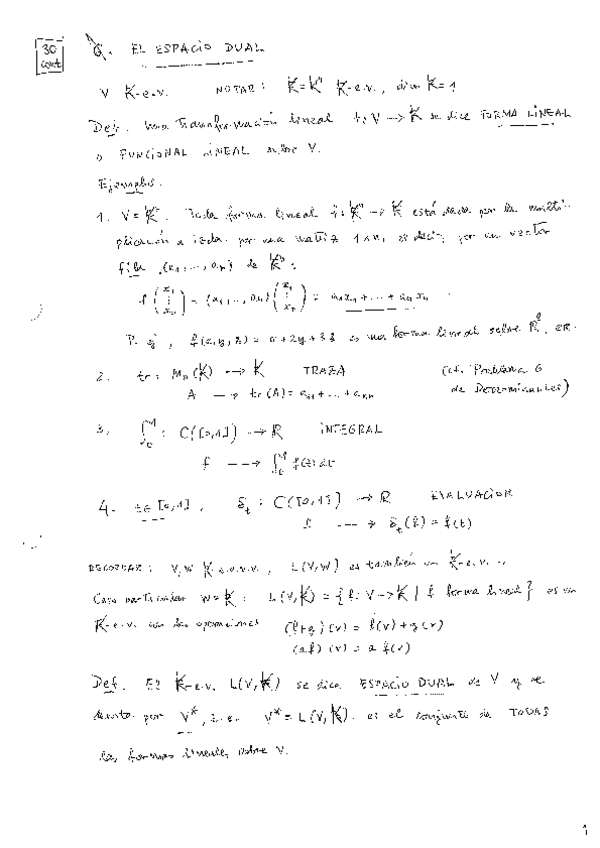 30 cont
6. EL ESPACIO DUAL
V K-e.v. NOTAR: K=K¹ K-e.v., dim K=1
Def. Una transformación lineal f: V → K se dice FORMA LINEAL
o FUNCIONAL LINEAL sobre V.
Ejemplos.
1. V = Kⁿ. Toda forma lineal f: Kⁿ → K está dada por la multi-
plicación a izda. por una matriz 1×n, es decir, por un vector
fila (a₁, ..., aₙ) de Kⁿ:
f (x₁ ⋮ xₙ) = (a₁, ..., aₙ) (x₁ ⋮ xₙ) = a₁x₁ + ... + aₙxₙ
P. ej., f(x,y,z) = x+2y+3z es una forma lineal sobre R³
2. tr: Mₙ(K) → K TRAZA (cf. Problema 6
A ---> tr(A) = a₁₁ + ... + aₙₙ de Determinantes)
3. ∫₀¹ : C([0,1]) → R INTEGRAL
f ---> ∫₀¹ f(t) dt
4. t ∈ [0,1], δₜ : C([0,1]) → R EVALUACION
f ---> δₜ(f) = f(t)
RECORDAR: V, W K-e.v.v., L(V,W) es también un K-e.v.
Caso particular W = K: L(V,K) = {f: V → K | f forma lineal} es un
K-e.v. con las operaciones (f+g)(v) = f(v)+g(v)
(af)(v) = a f(v)
Def. El K-e.v. L(V,K) se dice ESPACIO DUAL de V y se
denota por V*, i.e. V* = L(V,K) es el conjunto de TODAS
las formas lineales sobre V.
1